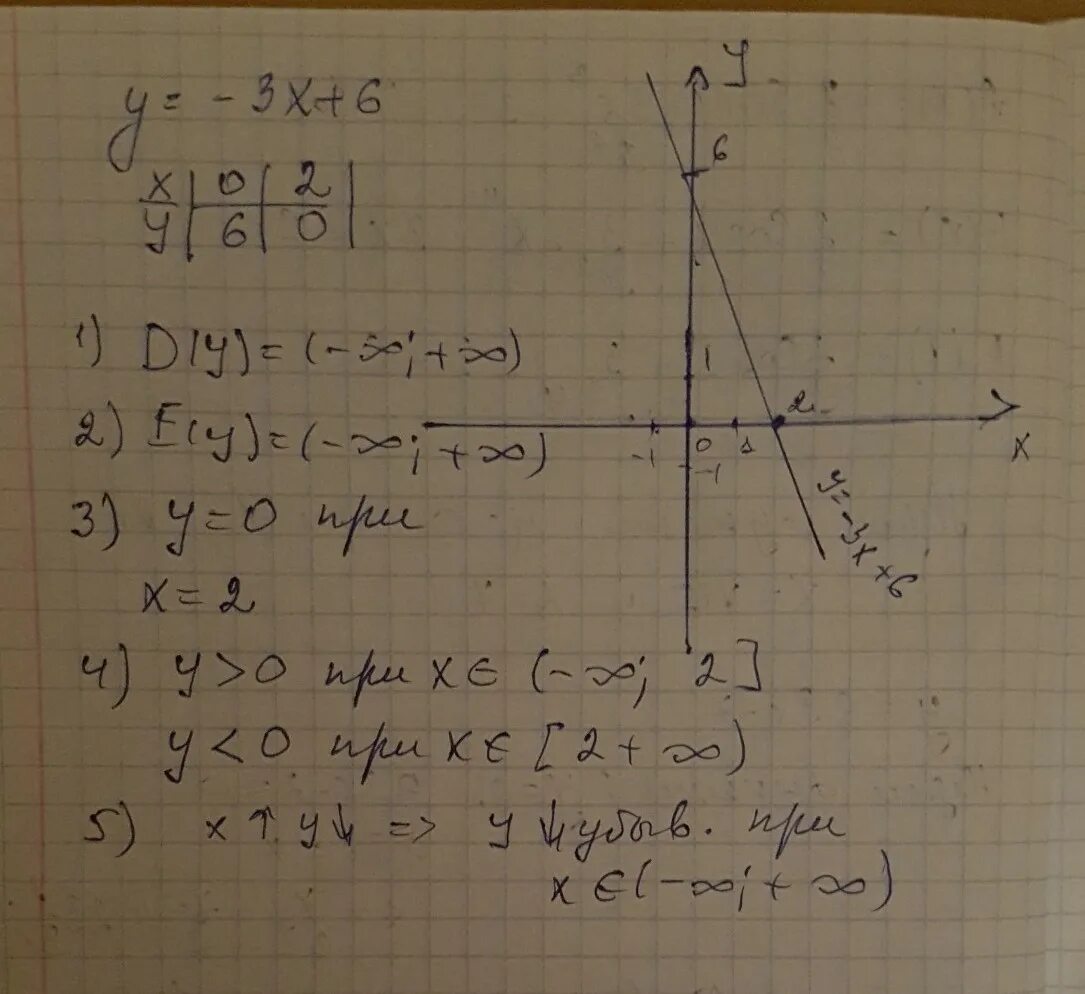 y = - 3x + 6
x | 0 | 2 |
y | 6 | 0 |
1) D(y) = (- ∞; + ∞)
2) E(y) = (- ∞; + ∞)
3) y = 0 при
x = 2
4) y > 0 при x ∈ (- ∞; 2]
y < 0 при x ∈ [2 + ∞)
5) x ↑ y ↓ => y ↓ убыв. при
x ∈ (- ∞; + ∞)
y
6
1
2
-1 0 1
x
-1
y = -3x + 6